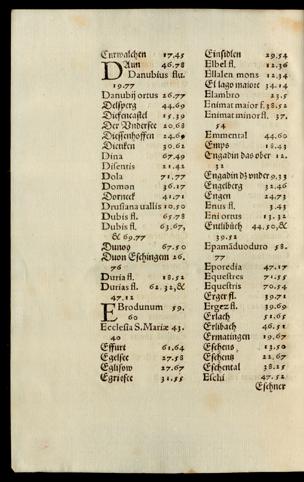 Curwalchen 17.45
DAun 46.78
Danubius flu.
19.77
Danubij ortus 26.77
Delsperg 44.69
Diefencastel 15.39
Der Undersee 20.68
Diessenhoffen 22.69
Dietiken 30.62
Dina 67.49
Disentis 21.42
Dola 71.77
Domon 36.17
Dorneck 41.71
Drusiana uallis 10.50
Dubis fl. 65.78
Dubis fl. 63.67,
& 69.77
Dunoo 67.50
Duon Eschingem 26.
76
Duria fl. 18.52
Durias fl. 62.32,&
47.12
EBrodunum 59.
60
Ecclesia S.Mariæ 43.
40
Effurt 61.64
Egelsee 27.58
Eglisow 27.67
Egriesee 31.55
Einsidlen 29.54
Elbel fl. 12.36
Ellalen mons 12.34
El lago maiore 34.14
Elambro 23.5
Enimat maior f.38.52
Enimat minor fl. 37.
54
Emmental 44.60
Emps 18.43
Engadin das ober 12.
32
Engadin dz under 9.33
Engelberg 32.46
Engen 24.73
Enus fl. 3.43
Eni ortus 13.32
Entlibuch 44.50,&
39.52
Epamăduoduro 58.
77
Eporedia 47.17
Equestres 71.55
Equestris 70.54
Erger fl. 39.71
Ergez fl. 39.69
Erlach 51.65
Erlibach 46.51
Ermatingen 19.67
Eschens 13.50
Eschentz 22.67
Eschental 38.25
Eschi 47.52
Eschner